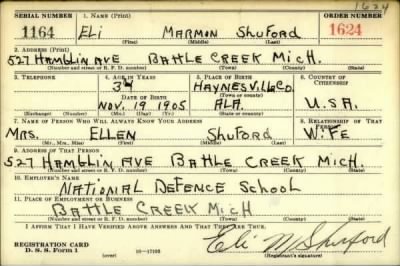 1624
SERIAL NUMBER 1. NAME (Print) ORDER NUMBER
1164 ELi MARMON ShuFORD 1624
(First) (Middle) (Last)
2. ADDRESS (Print)
527 HAMBLIN AVE BATTLE CREEK MICH.
(Number and street or R. F. D. number) (Town) (County) (State)
3. TELEPHONE 4. AGE IN YEARS 5. PLACE OF BIRTH 6. COUNTRY OF CITIZENSHIP
34 HAYNESVILLE
DATE OF BIRTH (Town or county)
NOV. 19 1905 ALA. U.S.A.
(Exchange) (Number) (Mo.) (Day) (Yr.) (State or country)
7. NAME OF PERSON WHO WILL ALWAYS KNOW YOUR ADDRESS 8. RELATIONSHIP OF THAT PERSON
MRS. ELLEN ShuFORD WiFE
(Mr., Mrs., Miss) (First) (Middle) (Last)
9. ADDRESS OF THAT PERSON
527 HAMBLIN AVE BATTLE CREEK MICH.
(Number and street or R. F. D. number) (Town) (County) (State)
10. EMPLOYER'S NAME
NATIONAL DEFENCE SCHOOL
11. PLACE OF EMPLOYMENT OR BUSINESS
BATTLE CREEK MICH
(Number and street or R. F. D. number) (Town) (County) (State)
I AFFIRM THAT I HAVE VERIFIED ABOVE ANSWERS AND THAT THEY ARE TRUE.
REGISTRATION CARD
D. S. S. Form 1 16—17105 Eli M Shuford
(Registrant's signature)